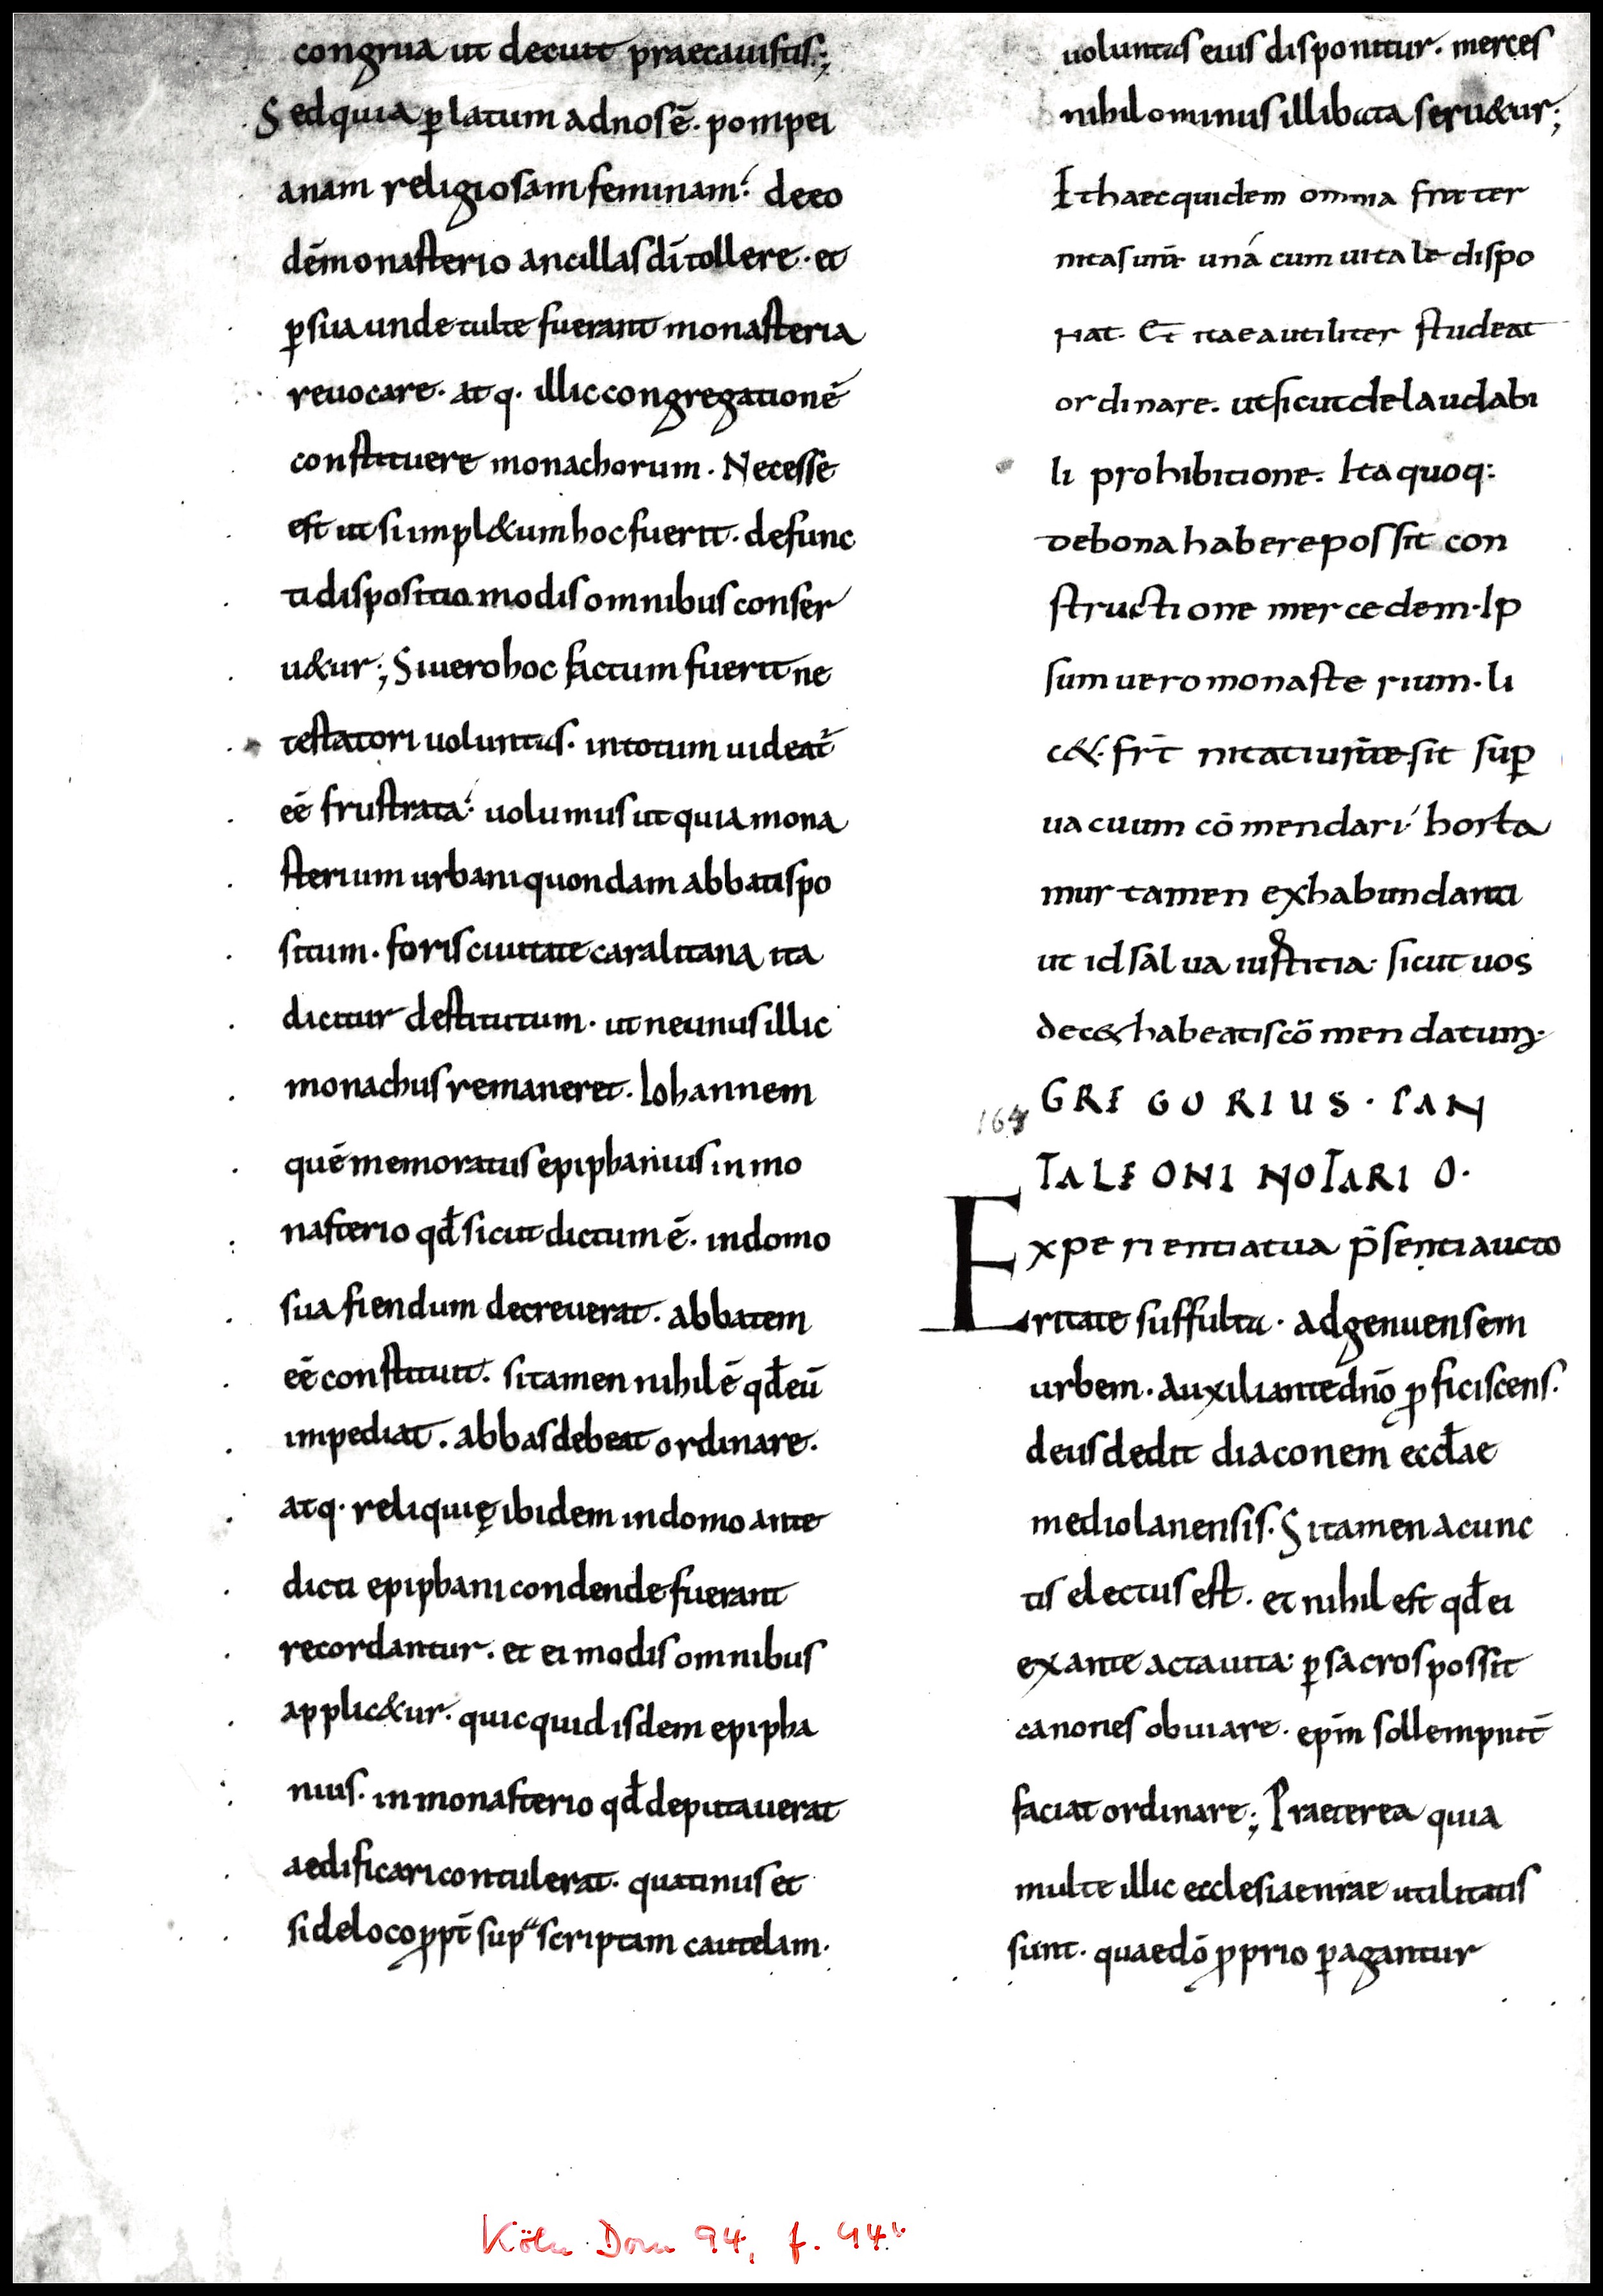 congrua ut decuit praecauistis;
Sed quia p̲ latum ad nos ē. pompei
anam religiosam feminam. de eo
dē monasterio ancillas dī tollere. et
p̲ sua unde tulte fuerant monasteria
reuocare. atq. illic congregationē
constituere monachorum. Necesse
est ut si impl&um hoc fuerit. defunc
ti dispositio modis omnibus conser
u&ur; Si uero hoc factum fuerit ne
testatori uoluntas. in totum uideat̄
eē frustrata. uolumus ut quia mona
sterium urbani quondam abbatis po
situm. foris ciuitate caralitana ita
dicitur destitutum. ut ne unus illic
monachus remaneret. Iohannem
quē memoratus epiphanius in mo
nasterio qđ sicut dictum ē. in domo
sua fiendum decreuerat. abbatem
eē constituit. si tamen nihil ē qđ eū
impediat. abbas debeat ordinare.
atq. reliquię ibidem in domo ante
dicti epiphani condende fuerant
recordantur. et ei modis omnibus
applic&ur. quicquid isdem epipha
nius. in monasterio qđ deputauerat
aedificari contulerat. quatinus et
si de loco ꝓpt̄ sup̲ scriptam cautelam.
uoluntas eius disponitur. merces
nihilominus illibata seru&ur;
It haec quidem omnia frater
nitas un̄a una cum uitale dispo
nat. Et ita ea utiliter studeat
ordinare. ut sicut de laudabi
li prohibitione. Ita quoq:
de bona habere possit con
structione mercedem. Ip
sum uero monasterium. li
c&. fr̄t nitati ur̄ae sit sup̲
uacuum cōmendari. horta
mur tamen ex habundanti
ut id salua iustitia. sicut uos
dec& habeatis cōmendatum.
164 GREGORIUS. PAN
TALEONI NOTARIO.
Experientia tua p̄senti aucto
ritate suffulta. ad genuensem
urbem. auxiliante dn̄o ꝓficiscens.
deusdedit diaconem eccłae
mediolanensis. Si tamen a cunc
tis electus est. et nihil est qđ ei
ex ante acta uita. p̲ sacros possit
canones obuiare. ep̄m sollempnit̄
faciat ordinare; Praeterea quia
multe illic ecclesiae nr̄ae utilitatis
sunt. quaedō ꝓprio p̲agantur
Köln Dom 94, f. 44v